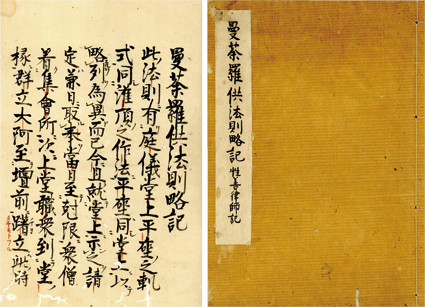 曼荼羅供法則略記
此法則有庭儀堂上平座之軌
式同灌頂之作法平座同堂上以
略列為異而已今且就堂上示之請
定兼日取来當日至尅限衆僧
着集會所次上堂職衆到堂
縁群立大阿至壇前蹲立此時
曼荼羅供法則略記 性善律師記